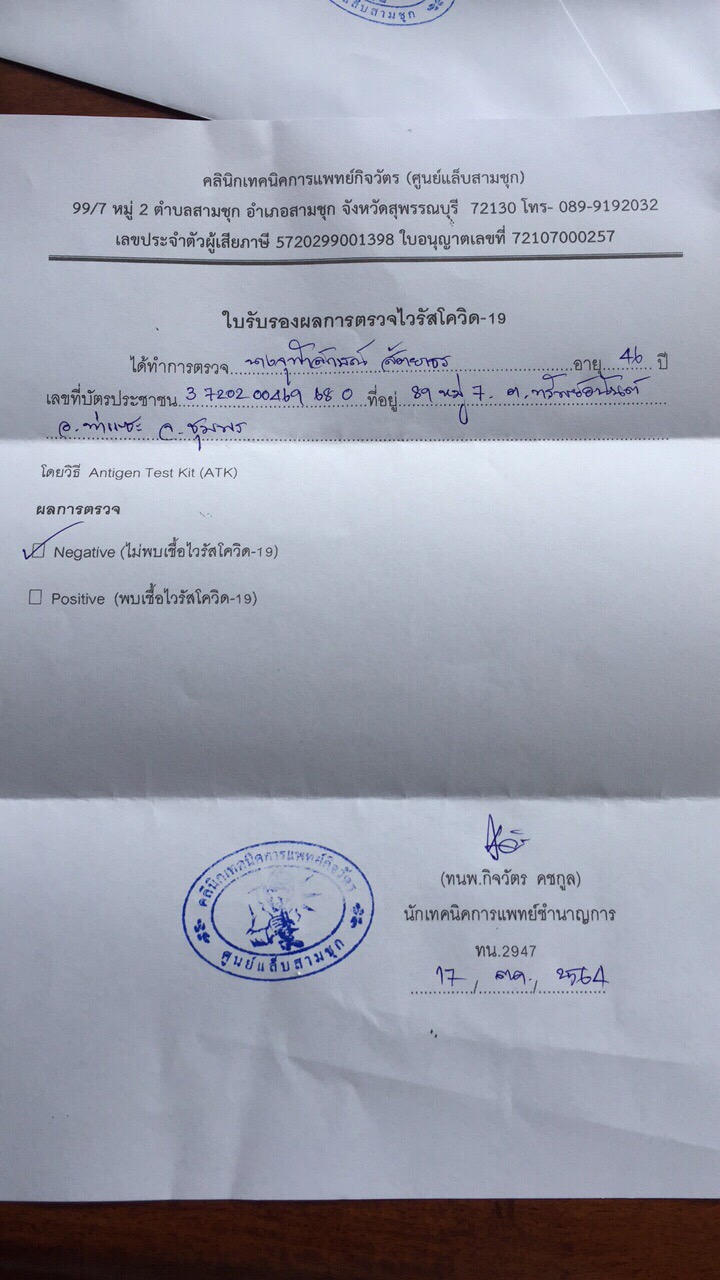 ศูนย์แล็บสามชุก
คลินิกเทคนิคการแพทย์กิจวัตร (ศูนย์แล็บสามชุก)
99/7 หมู่ 2 ตำบลสามชุก อำเภอสามชุก จังหวัดสุพรรณบุรี 72130 โทร- 089-9192032
เลขประจำตัวผู้เสียภาษี 5720299001398 ใบอนุญาตเลขที่ 72107000257
ใบรับรองผลการตรวจไวรัสโควิด-19
ได้ทำการตรวจ อายุ 46 ปี
เลขที่บัตรประชาชน 3 7202 00469 68 0 ที่อยู่ 89 หมู่ 7. ต.ทรัพย์อนันต์
อ.ท่าแซะ จ.ชุมพร
โดยวิธี Antigen Test Kit (ATK)
ผลการตรวจ
Negative (ไม่พบเชื้อไวรัสโควิด-19)
Positive (พบเชื้อไวรัสโควิด-19)
คลินิกเทคนิคการแพทย์กิจวัตร
ศูนย์แล็บสามชุก
(ทนพ.กิจวัตร คชกูล)
นักเทคนิคการแพทย์ชำนาญการ
ทน.2947
17 / ตค. / 2564